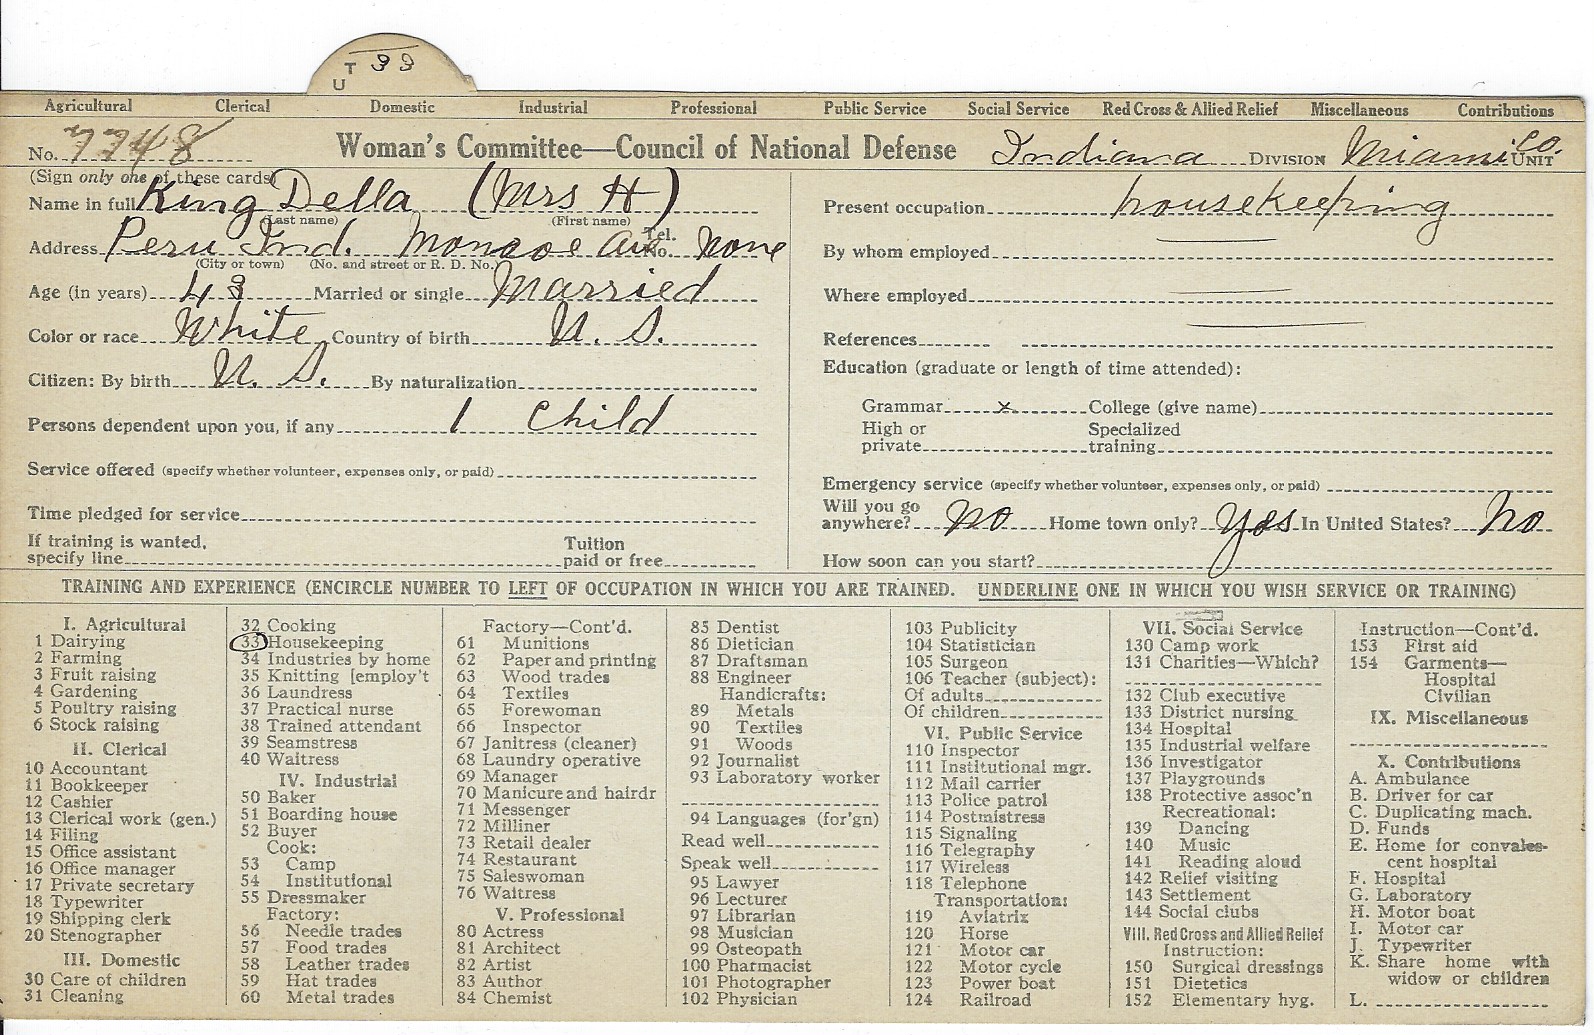 T 33
U
Agricultural Clerical Domestic Industrial Professional Public Service Social Service Red Cross & Allied Relief Miscellaneous Contributions
No. 7748 Woman's Committee—Council of National Defense Indiana DIVISION Miami Co. UNIT
(Sign only one of these cards)
Name in full King Della (Mrs H)
(Last name) (First name)
Address Peru Ind. Monroe Ave Tel. No. None
(City or town) (No. and street or R. D. No.)
Age (in years) 43 Married or single Married
Color or race White Country of birth U. S.
Citizen: By birth U. S. By naturalization
Persons dependent upon you, if any 1 Child
Service offered (specify whether volunteer, expenses only, or paid)
Time pledged for service
If training is wanted, specify line Tuition paid or free
Present occupation housekeeping
By whom employed
Where employed
References
Education (graduate or length of time attended):
Grammar x College (give name)
High or private Specialized training
Emergency service (specify whether volunteer, expenses only, or paid)
Will you go anywhere? No Home town only? Yes In United States? No
How soon can you start?
TRAINING AND EXPERIENCE (ENCIRCLE NUMBER TO LEFT OF OCCUPATION IN WHICH YOU ARE TRAINED. UNDERLINE ONE IN WHICH YOU WISH SERVICE OR TRAINING)
I. Agricultural
1 Dairying
2 Farming
3 Fruit raising
4 Gardening
5 Poultry raising
6 Stock raising
II. Clerical
10 Accountant
11 Bookkeeper
12 Cashier
13 Clerical work (gen.)
14 Filing
15 Office assistant
16 Office manager
17 Private secretary
18 Typewriter
19 Shipping clerk
20 Stenographer
III. Domestic
30 Care of children
31 Cleaning
32 Cooking
33 Housekeeping
34 Industries by home
35 Knitting [employ't
36 Laundress
37 Practical nurse
38 Trained attendant
39 Seamstress
40 Waitress
IV. Industrial
50 Baker
51 Boarding house
52 Buyer
Cook:
53 Camp
54 Institutional
55 Dressmaker
Factory:
56 Needle trades
57 Food trades
58 Leather trades
59 Hat trades
60 Metal trades
Factory—Cont'd.
61 Munitions
62 Paper and printing
63 Wood trades
64 Textiles
65 Forewoman
66 Inspector
67 Janitress (cleaner)
68 Laundry operative
69 Manager
70 Manicure and hairdr
71 Messenger
72 Milliner
73 Retail dealer
74 Restaurant
75 Saleswoman
76 Waitress
V. Professional
80 Actress
81 Architect
82 Artist
83 Author
84 Chemist
85 Dentist
86 Dietician
87 Draftsman
88 Engineer
Handicrafts:
89 Metals
90 Textiles
91 Woods
92 Journalist
93 Laboratory worker
94 Languages (for'gn)
Read well
Speak well
95 Lawyer
96 Lecturer
97 Librarian
98 Musician
99 Osteopath
100 Pharmacist
101 Photographer
102 Physician
103 Publicity
104 Statistician
105 Surgeon
106 Teacher (subject):
Of adults
Of children
VI. Public Service
110 Inspector
111 Institutional mgr.
112 Mail carrier
113 Police patrol
114 Postmistress
115 Signaling
116 Telegraphy
117 Wireless
118 Telephone
Transportation:
119 Aviatrix
120 Horse
121 Motor car
122 Motor cycle
123 Power boat
124 Railroad
VII. Social Service
130 Camp work
131 Charities—Which?
132 Club executive
133 District nursing
134 Hospital
135 Industrial welfare
136 Investigator
137 Playgrounds
138 Protective assoc'n
Recreational:
139 Dancing
140 Music
141 Reading aloud
142 Relief visiting
143 Settlement
144 Social clubs
VIII. Red Cross and Allied Relief
Instruction:
150 Surgical dressings
151 Dietetics
152 Elementary hyg.
Instruction—Cont'd.
153 First aid
154 Garments—
Hospital
Civilian
IX. Miscellaneous
X. Contributions
A. Ambulance
B. Driver for car
C. Duplicating mach.
D. Funds
E. Home for convales-
cent hospital
F. Hospital
G. Laboratory
H. Motor boat
I. Motor car
J. Typewriter
K. Share home with
widow or children
L.